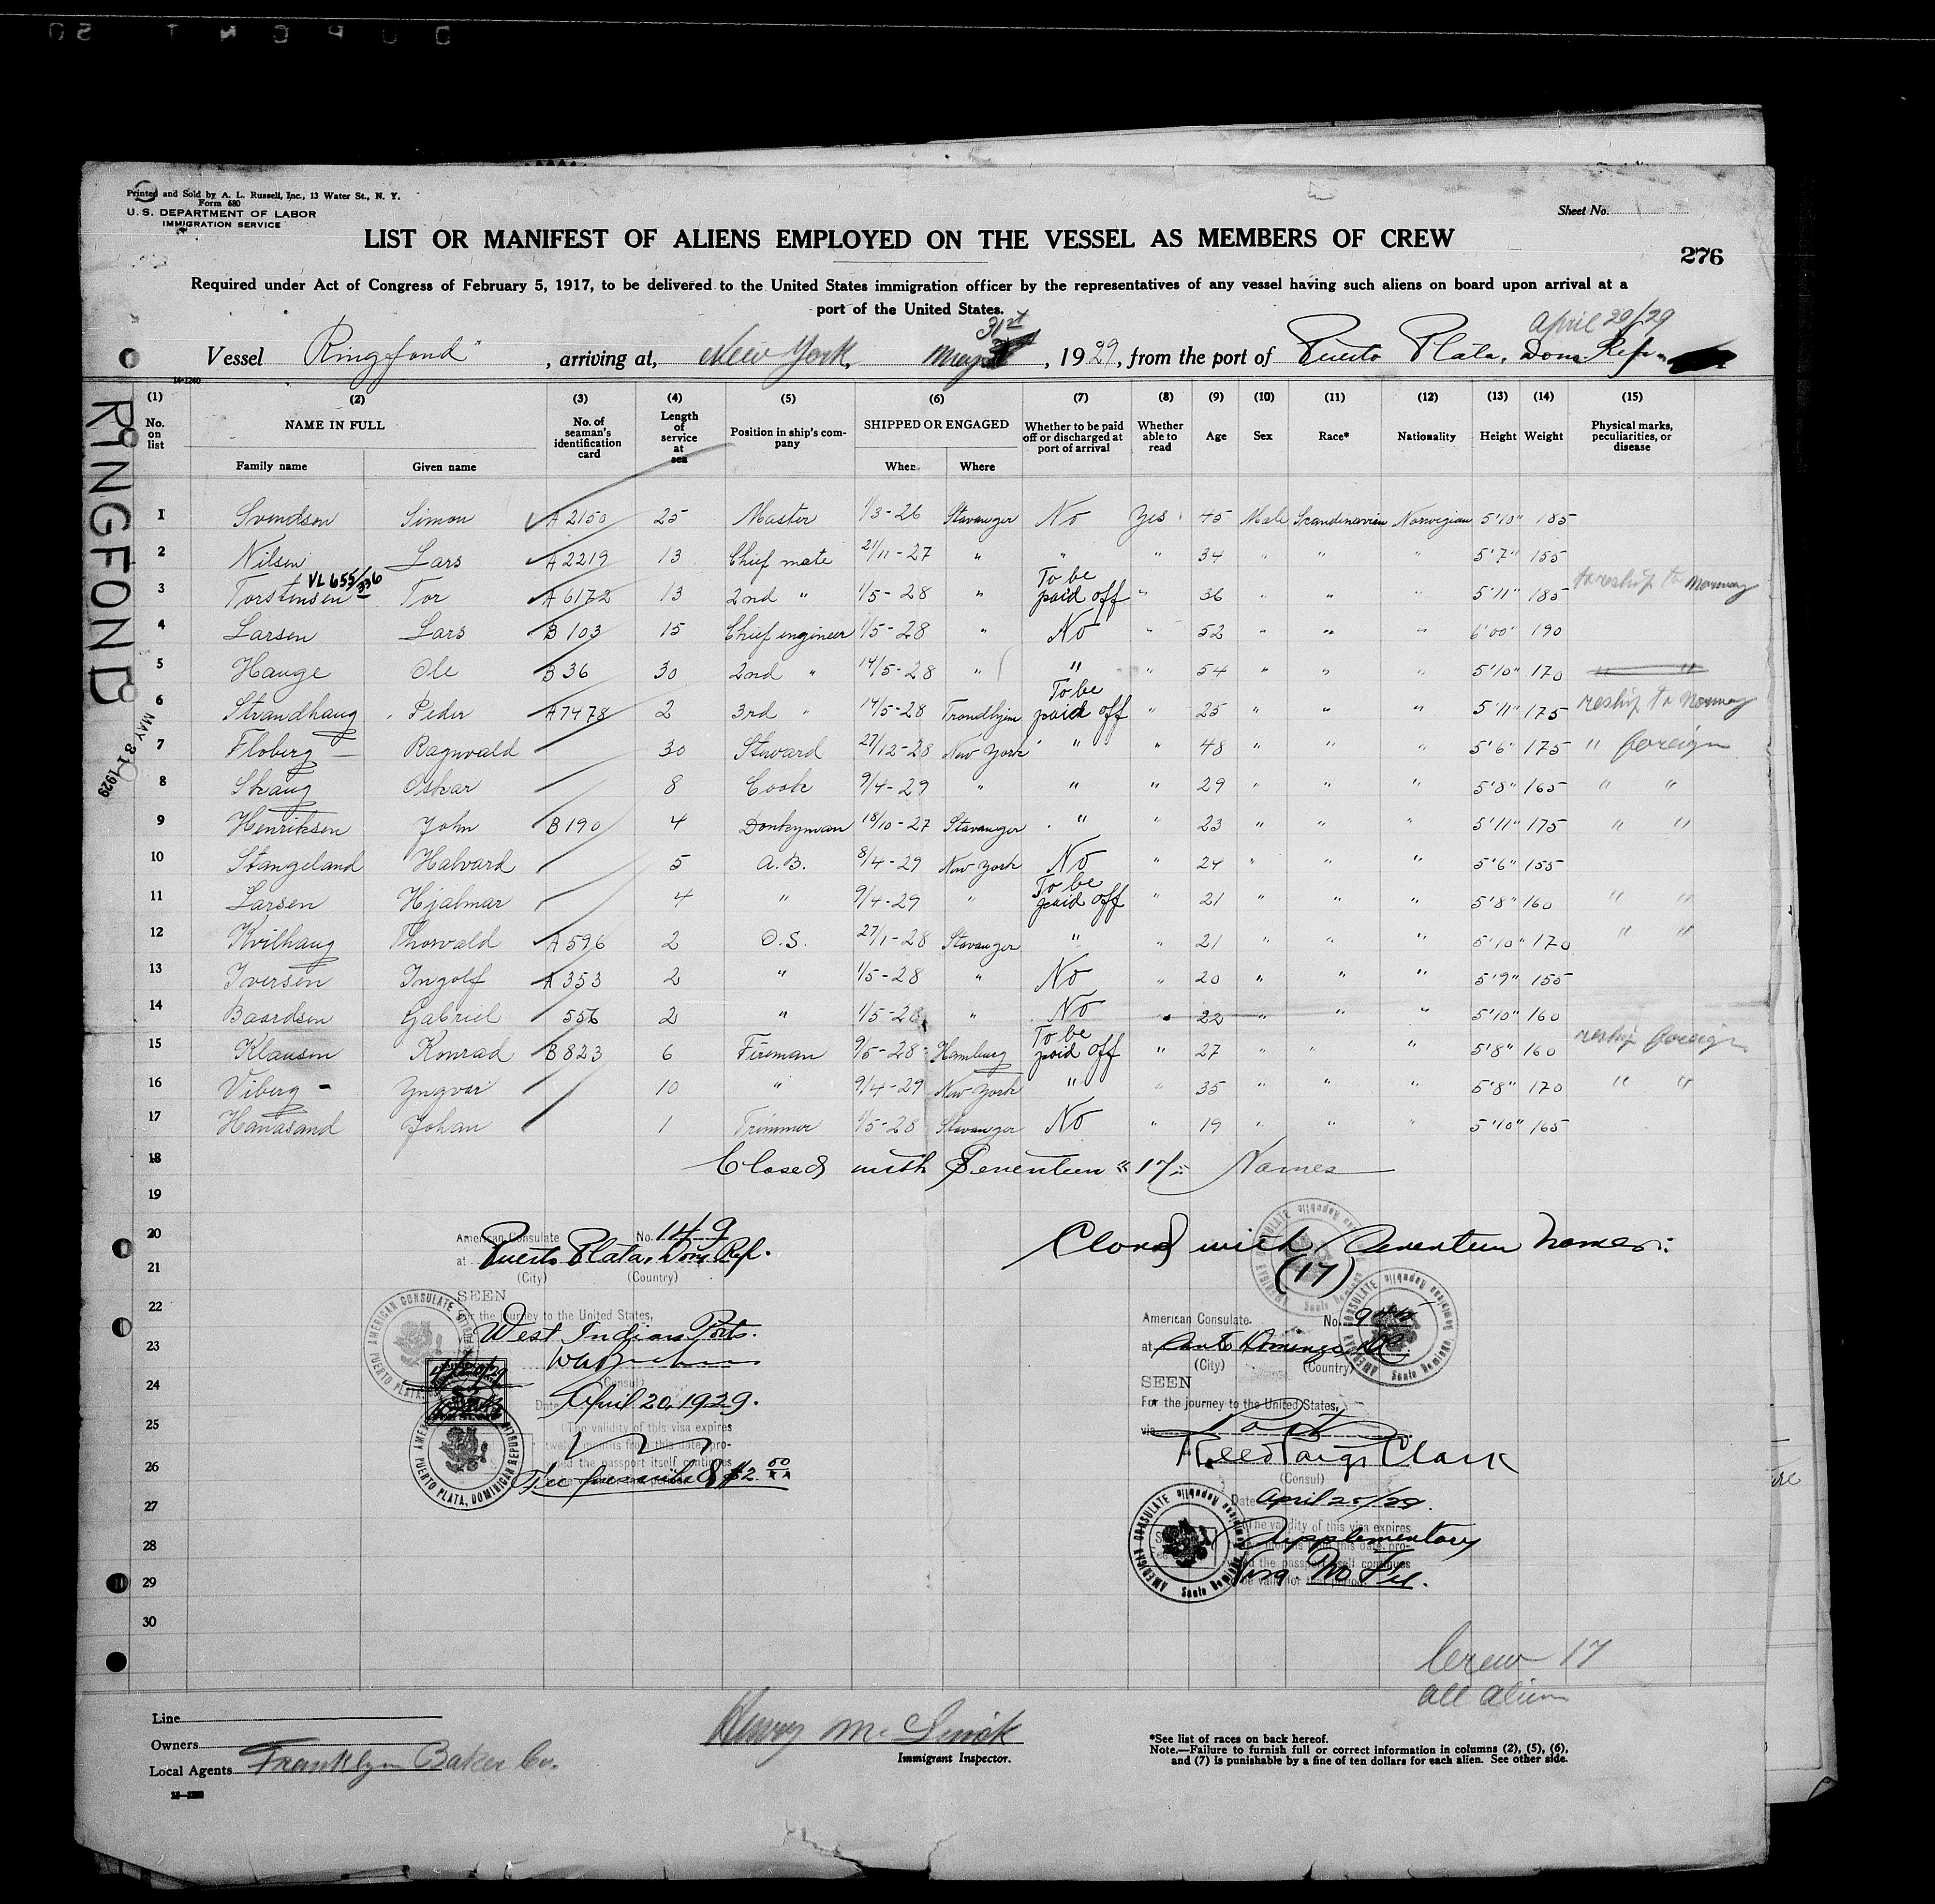 Printed and Sold by A. L. Russell, Inc., 13 Water St., N. Y.
Form 680
U. S. DEPARTMENT OF LABOR
IMMIGRATION SERVICE
Sheet No.
LIST OR MANIFEST OF ALIENS EMPLOYED ON THE VESSEL AS MEMBERS OF CREW
276
Required under Act of Congress of February 5, 1917, to be delivered to the United States immigration officer by the representatives of any vessel having such aliens on board upon arrival at a
port of the United States.
April 20/29
31st
Vessel Ringfond" , arriving at, New York, May , 1929, from the port of Puerto Plata, Dom. Rep.
14-1240
RINGFOND
MAY 31 1929
(1) (2) (3) (4) (5) (6) (7) (8) (9) (10) (11) (12) (13) (14) (15)
No. on list NAME IN FULL No. of seaman's identification card Length of service at sea Position in ship's company SHIPPED OR ENGAGED Whether to be paid off or discharged at port of arrival Whether able to read Age Sex Race* Nationality Height Weight Physical marks, peculiarities, or disease
Family name Given name When Where
1 Svendsen Simon A 2150 25 Master 1/3-26 Stavanger No Yes 45 Male Scandinavian Norwegian 5'10" 185
2 Nilsen Lars A 2219 13 Chief mate 21/11-27 " " " 34 " " " 5'7" 155
VL 655/336
3 Torstensen Tor A 6172 13 2nd " 1/5-28 " To be paid off " 36 " " " 5'11" 185 to reship to Norway
4 Larsen Lars B 103 15 Chief engineer 1/5-28 " No " 52 " " " 6'00" 190
5 Hauge Ole B 36 30 2nd " 14/5-28 " " " 54 " " " 5'10" 170 " "
6 Strandhaug Peder A7478 2 3rd " 14/5-28 Trondhjem To be paid off " 25 " " " 5'11" 175 reship to Norway
7 Floberg Ragnvald 30 Steward 27/12-28 New York " " 48 " " " 5'6" 175 " foreign
8 Skaug Oskar 8 Cook 9/4-29 " " " 29 " " " 5'8" 165 " "
9 Henriksen John B190 4 Donkyman 18/10-27 Stavanger " " 23 " " " 5'11" 175 " "
10 Stangeland Halvard 5 A.B. 8/4-29 New York No " 24 " " " 5'6" 155
11 Larsen Hjalmar 4 " 9/4-29 " To be paid off " 21 " " " 5'8" 160 " "
12 Kvilhaug Thorvald A 596 2 O.S. 27/1-28 Stavanger " " 21 " " " 5'10" 170 " "
13 Iversen Ingolf A 353 2 " 1/5-28 " No " 20 " " " 5'9" 155
14 Baardsen Gabriel 556 2 " 1/5-28 " No " 22 " " " 5'10" 160
15 Klausen Konrad B 823 6 Fireman 9/5-28 Hamburg To be paid off " 27 " " " 5'8" 160 reship foreign
16 Viberg Yngvar 10 " 9/4-29 New York " " 35 " " " 5'8" 170 " "
17 Hanasand Johan 1 Trimmer 1/5-28 Stavanger No " 19 " " " 5'10" 165
18 Closed with Seventeen "17" Names
19
20
21
22
23
24
25
26
27
28
29
30
American Consulate No. 149
at Puerto Plata, Dom. Rep.
(City) (Country)
SEEN
For the journey to the United States,
West Indian Ports.
(Consul)
Date April 20, 1929.
(The validity of this visa expires
twelve months from this date, pro-
vided the passport itself continues
Fee prescribed $2.00
AMERICAN CONSULATE
PUERTO PLATA, DOMINICAN REPUBLIC
Closed with Seventeen names:
(17)
American Consulate. No.
at Santo Domingo,
(City) (Country)
SEEN
For the journey to the United States,
via
Reed Paige Clark
(Consul)
Date April 25/29.
(The validity of this visa expires
Supplementary
Visa. No Fee.
be valid for that period.
AMERICAN CONSULATE Santo Domingo Dominican Republic
Crew 17
all alien
Line
Owners
Local Agents Franklyn Baker Co.
Immigrant Inspector.
*See list of races on back hereof.
Note.—Failure to furnish full or correct information in columns (2), (5), (6),
and (7) is punishable by a fine of ten dollars for each alien. See other side.